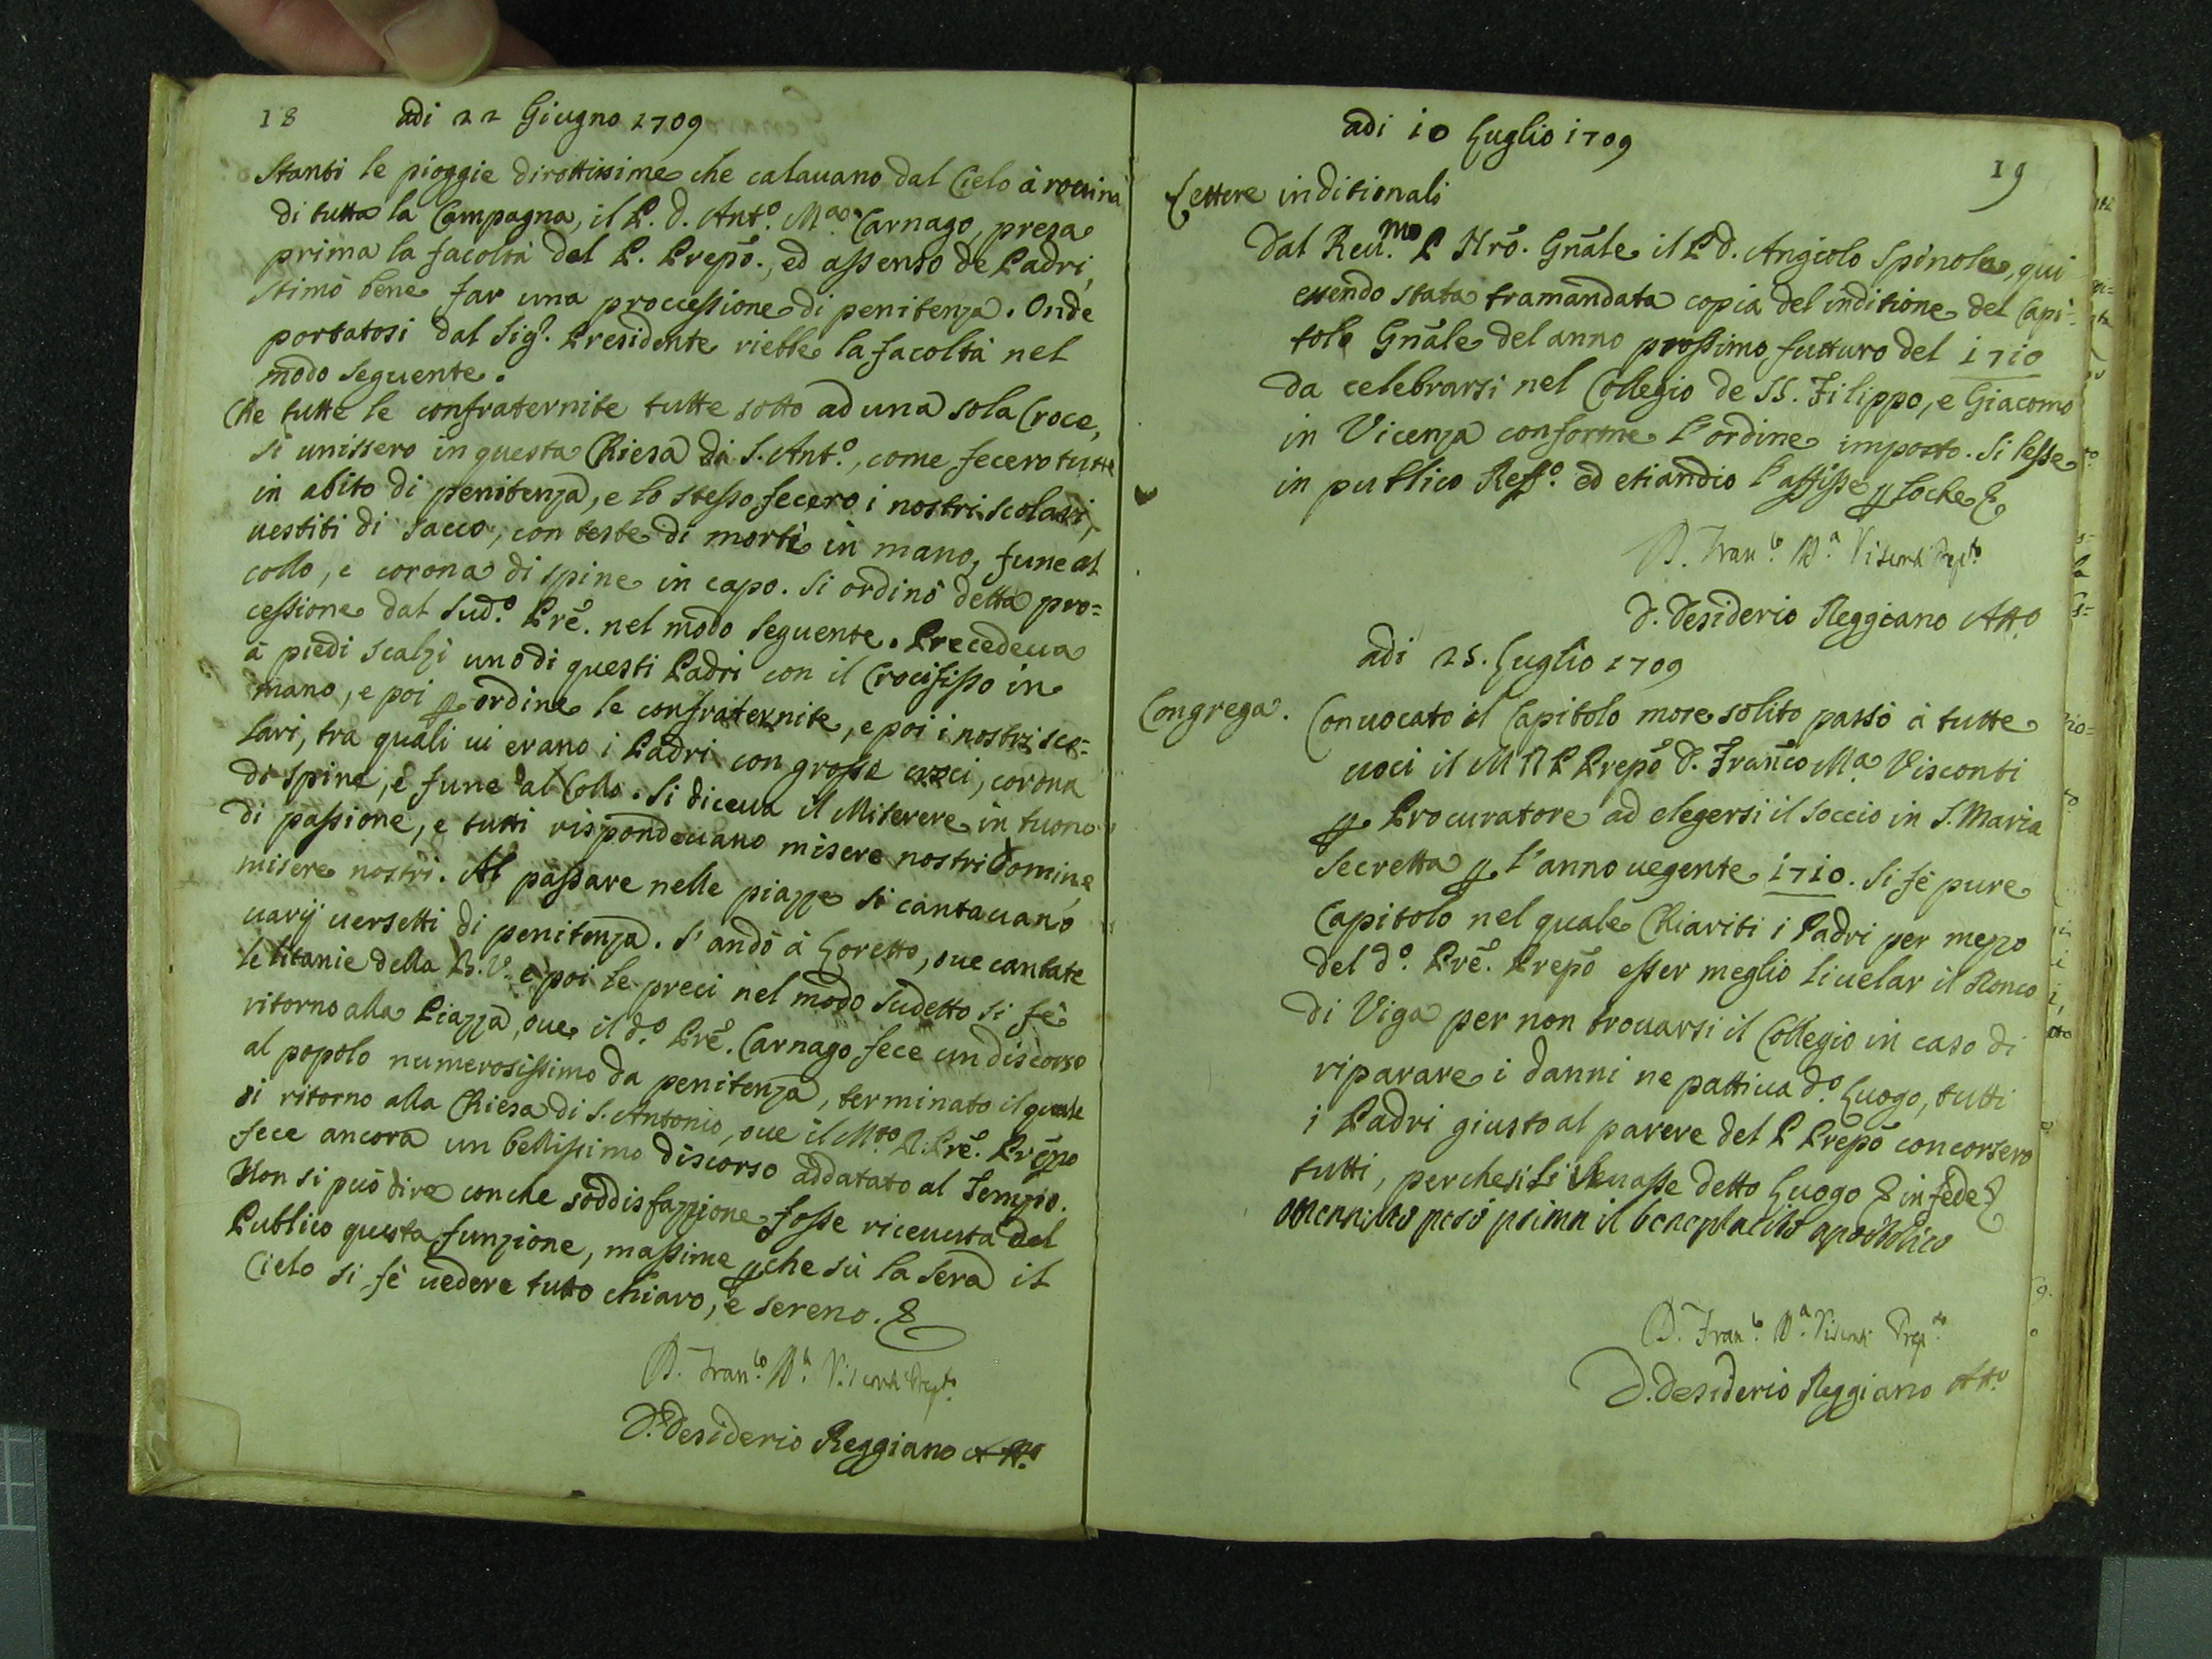 18 adi 22 Giugno 1709
Stanti le pioggie dirottissime che calauano dal Cielo à rouina
di tutta la Campagna, il P. D. Ant.o M.a Carnago, presa
prima la facoltà del P. Prepõ., ed assenso de Padri,
stimò bene far una proccessione di penitenza. Onde
portatosi dal Sig.r Presidente riebbe la facoltà nel
modo seguente.
Che tutte le confraternite tutte sotto ad una sola Croce,
si unissero in questa Chiesa di S. Ant.o, come fecero tutte
in abito di penitenza, e lo stesso fecero i nostri scolari,
uestiti di sacco, con teste di morti in mano, fune al
collo, e corona di spine in capo. Si ordinò detta pro=
cessione dal Sud.o Prẽ. nel modo seguente. Precedeua
à piedi scalzi uno di questi Padri con il Crocifisso in
mano, e poi p ordine le confraternite, e poi i nostri sco=
lari, tra quali ui erano i Padri con grosse croci, corona
di spine, e fune al Collo. Si diceua il Miserere in tuono
di passione, e tutti rispondeuano misere nostri Domine
misere nostri. Al passare nelle piazze si cantauano
uarij uersetti di penitenza. S'andò à Loretto, oue cantate
le litanie della B. V. e poi le preci nel modo sudetto si fè
ritorno alla Piazza, oue il d.o Prẽ. Carnago fece un discorso
al popolo numerosissimo da penitenza, terminato il quale
si ritorno alla Chiesa di S. Antonio, oue il M.to R. Prẽ. Prepõ
fece ancora un bellissimo discorso addatato al tempio.
Non si può dire con che soddisfazzione fosse riceuuta dal
Publico questa funzione, massime pche sù la sera il
Cielo si fè uedere tutto chiaro, e sereno. &
D. Fran.co M.a Visconti Prep.to
D. Desiderio Reggiano Att.o
adi 10 Luglio 1709
19
Lettere inditionali
Dal Reu.mo P Nrõ. Gnãle il P D. Angiolo Spinola, qui
essendo stata tramandata copia del inditione del Capi=
tolo Gnãle del anno prossimo futturo del 1710
da celebrarsi nel Collegio de SS. Filippo, e Giacomo
in Vicenza conforme l'ordine imposto. Si lesse
in publico Reff.o ed etiandio l'affisse p &
D. Fran.co M.a Visconti Prep.to
D. Desiderio Reggiano Att.o
adi 25. Luglio 1709
Congrega. Conuocato il Capitolo more solito passò à tutte
uoci il M R P Prepõ D. Franc̃o M.a Visconti
p Procuratore ad elegersi il soccio in S. Maria
Secretta p l'anno uegente 1710. Si fè pure
Capitolo nel quale Chiariti i Padri per mezzo
del d.o Prẽ. Prepõ esser meglio liuelar il Ronco
di Viga per non trouarsi il Collegio in caso di
riparare i danni ne pattiua d.o Luogo, tutti
i Padri giusto al parere del P Prepõ concorsero
tutti, perche si liuellasse detto Luogo & in fede &
ottenuto però prima il beneplacito apostolico
D. Fran.co M.a Visconti Prep.to
D. Desiderio Reggiano Att.o